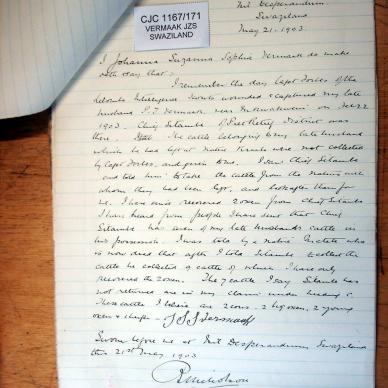 CJC 1167/171
VERMAAK JZS
SWAZILAND
Nil Desperandum.
Swaziland
May 21-1903
I Johanna Suzanna Sophia Vermaak do make
oath & say that:
I remember the day Capt Forbes of the
Intelligence Scouts wounded & captured my late
husband P.J. Vermaak near on
1903. Chief Silamba of District was
there. The cattle belonging to my late husband
which he had left at Native Kraals were not collected
by Capt Forbes, and given to me. I saw Chief Silamba
and told him to take the cattle from the natives with
whom they had been left, and keep them for
me. I have since received 2 oxen from Chief Silamba
I have heard from people I have sent that Chief
Silamba has seven of my late husbands cattle in
his possession. I was told by a Native who
is now dead that after I told Silamba to collect the
cattle he collected 9 cattle of which I have only
received the 2 oxen. The 7 cattle I say Silamba has
not returned are in my claim under heading
These cattle I believe are 2 cows. 2 big oxen, 2 young
oxen & 1 heifer - J S S Vermaak
Sworn before me at Nil Desperandum Swaziland
this 21st May 1903
R Nicholson